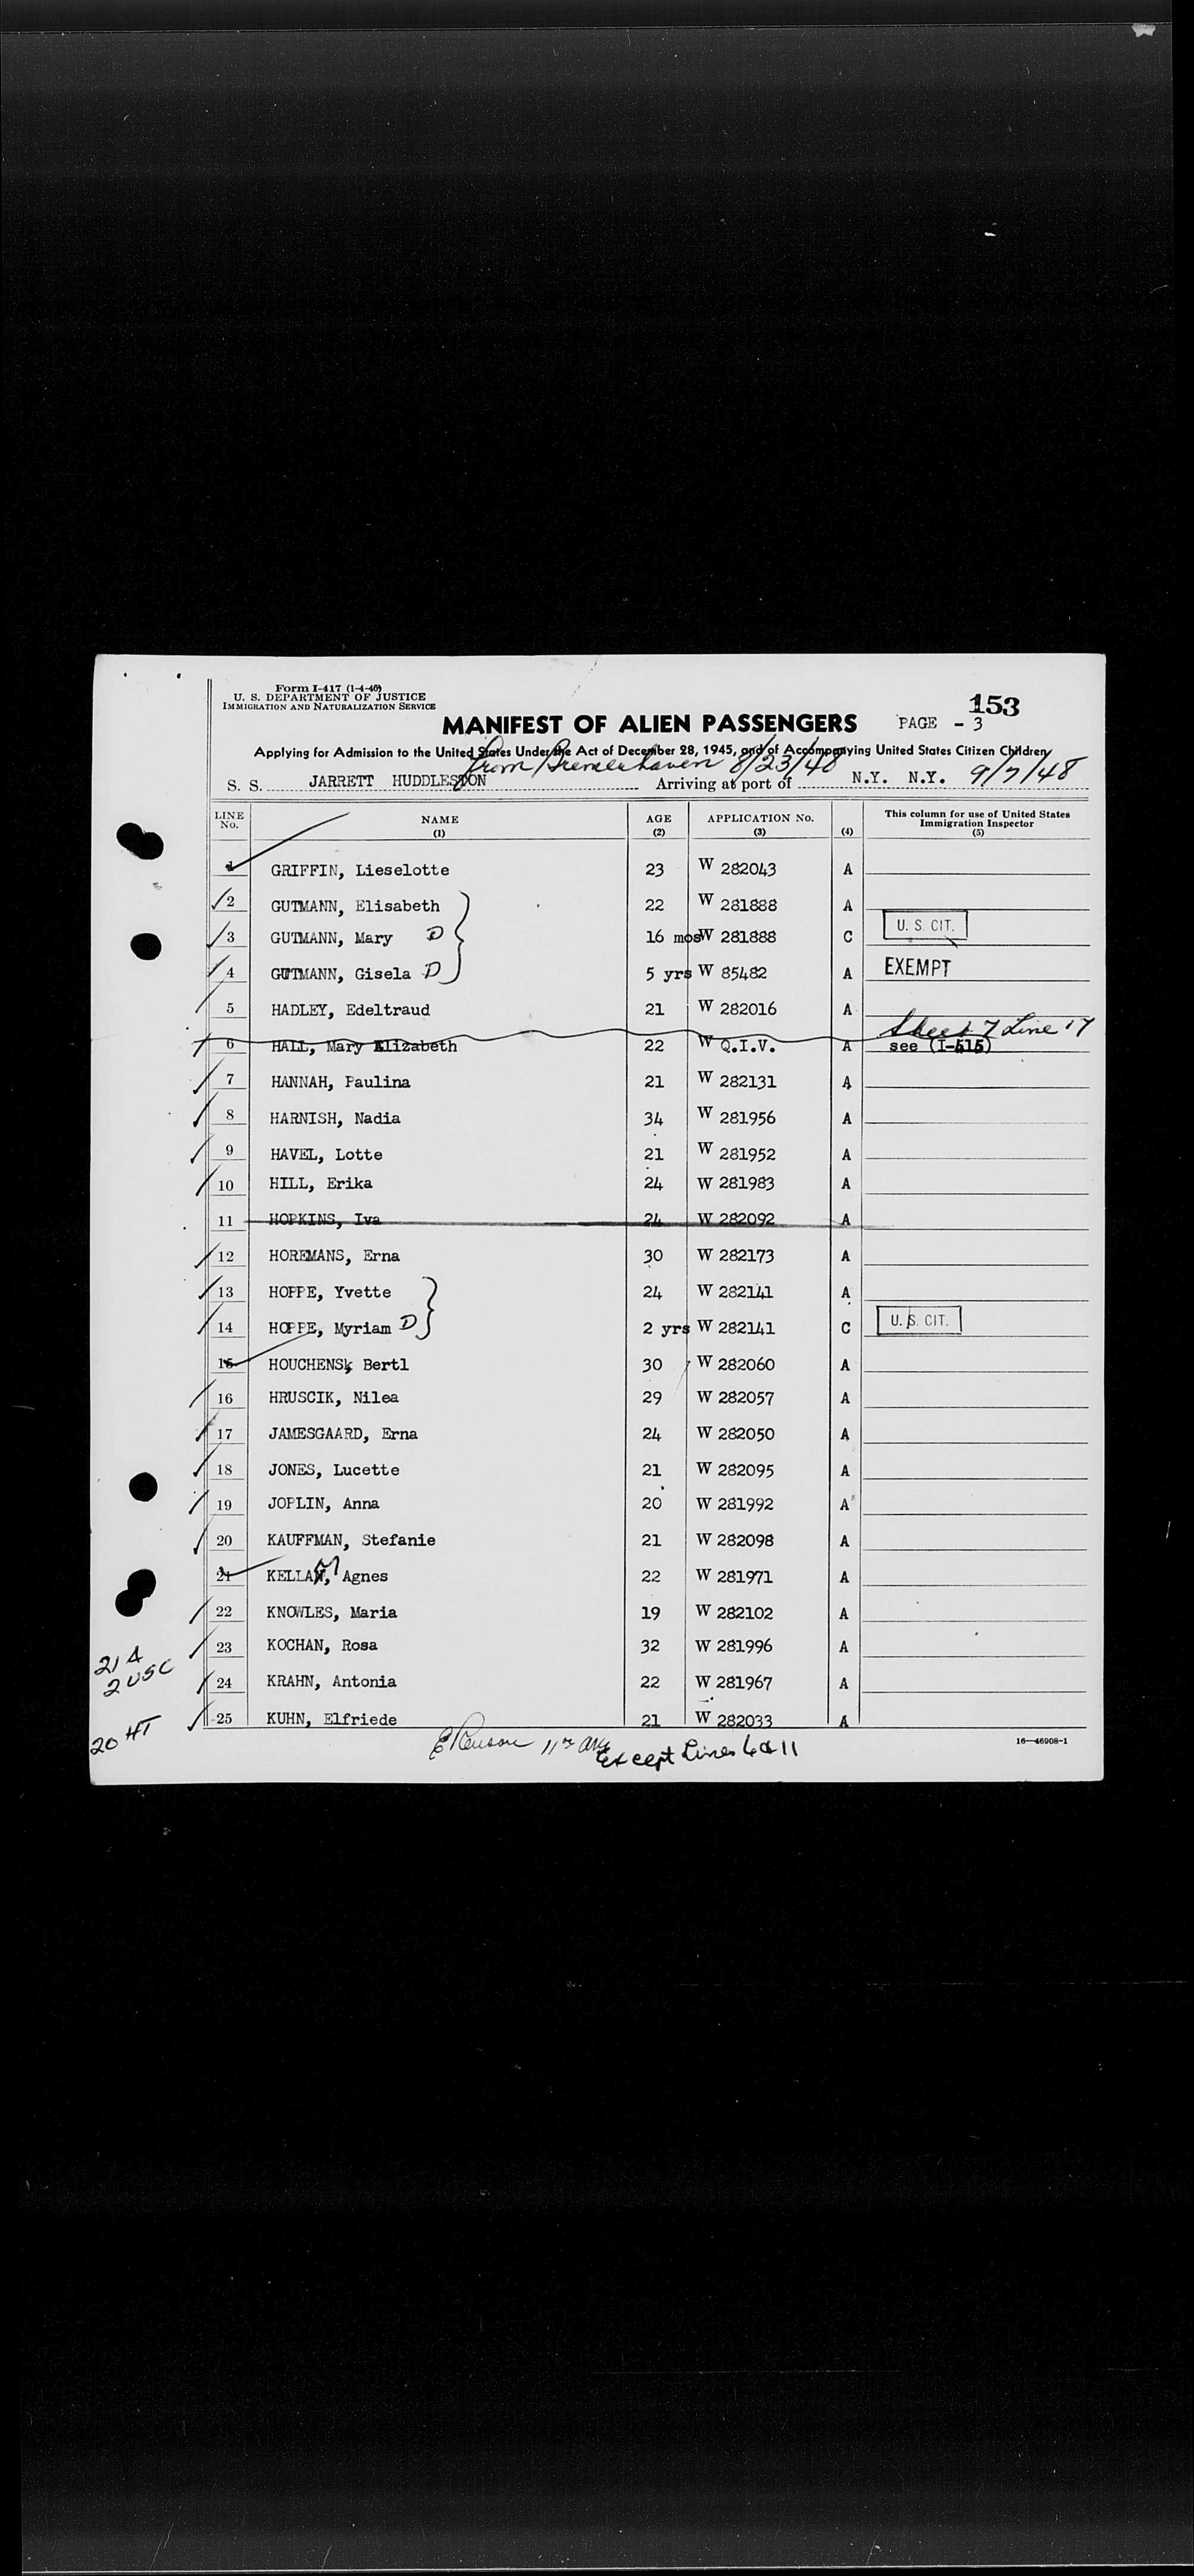 Form I-417 (1-4-46)
U. S. DEPARTMENT OF JUSTICE
IMMIGRATION AND NATURALIZATION SERVICE
153
MANIFEST OF ALIEN PASSENGERS PAGE - 3
Applying for Admission to the United States Under the Act of December 28, 1945, and of Accompanying United States Citizen Children
from Bremerhaven 8/23/48
S. S. JARRETT HUDDLESTON Arriving at port of N.Y. N.Y. 9/7/48
LINE No. NAME (1) AGE (2) APPLICATION No. (3) (4) This column for use of United States Immigration Inspector (5)
1 GRIFFIN, Lieselotte 23 W 282043 A
2 GUTMANN, Elisabeth 22 W 281888 A
3 GUTMANN, Mary D 16 mos W 281888 C U. S. CIT.
4 GUTMANN, Gisela D 5 yrs W 85482 A EXEMPT
5 HADLEY, Edeltraud 21 W 282016 A
Sheet 7 Line 17
6 HALL, Mary Elizabeth 22 W Q.I.V. A see (I-515)
7 HANNAH, Paulina 21 W 282131 A
8 HARNISH, Nadia 34 W 281956 A
9 HAVEL, Lotte 21 W 281952 A
10 HILL, Erika 24 W 281983 A
11 HOPKINS, Iva 24 W 282092 A
12 HOREMANS, Erna 30 W 282173 A
13 HOPPE, Yvette 24 W 282141 A
14 HOPPE, Myriam D 2 yrs W 282141 C U. S. CIT.
15 HOUCHENS, Bertl 30 W 282060 A
16 HRUSCIK, Nilea 29 W 282057 A
17 JAMESGAARD, Erna 24 W 282050 A
18 JONES, Lucette 21 W 282095 A
19 JOPLIN, Anna 20 W 281992 A
20 KAUFFMAN, Stefanie 21 W 282098 A
21 KELLAM, Agnes 22 W 281971 A
22 KNOWLES, Maria 19 W 282102 A
23 KOCHAN, Rosa 32 W 281996 A
21 A
2 USC
24 KRAHN, Antonia 22 W 281967 A
25 KUHN, Elfriede 21 W 282033 A
20 HT
Except Lines 6 & 11
16—46908-1